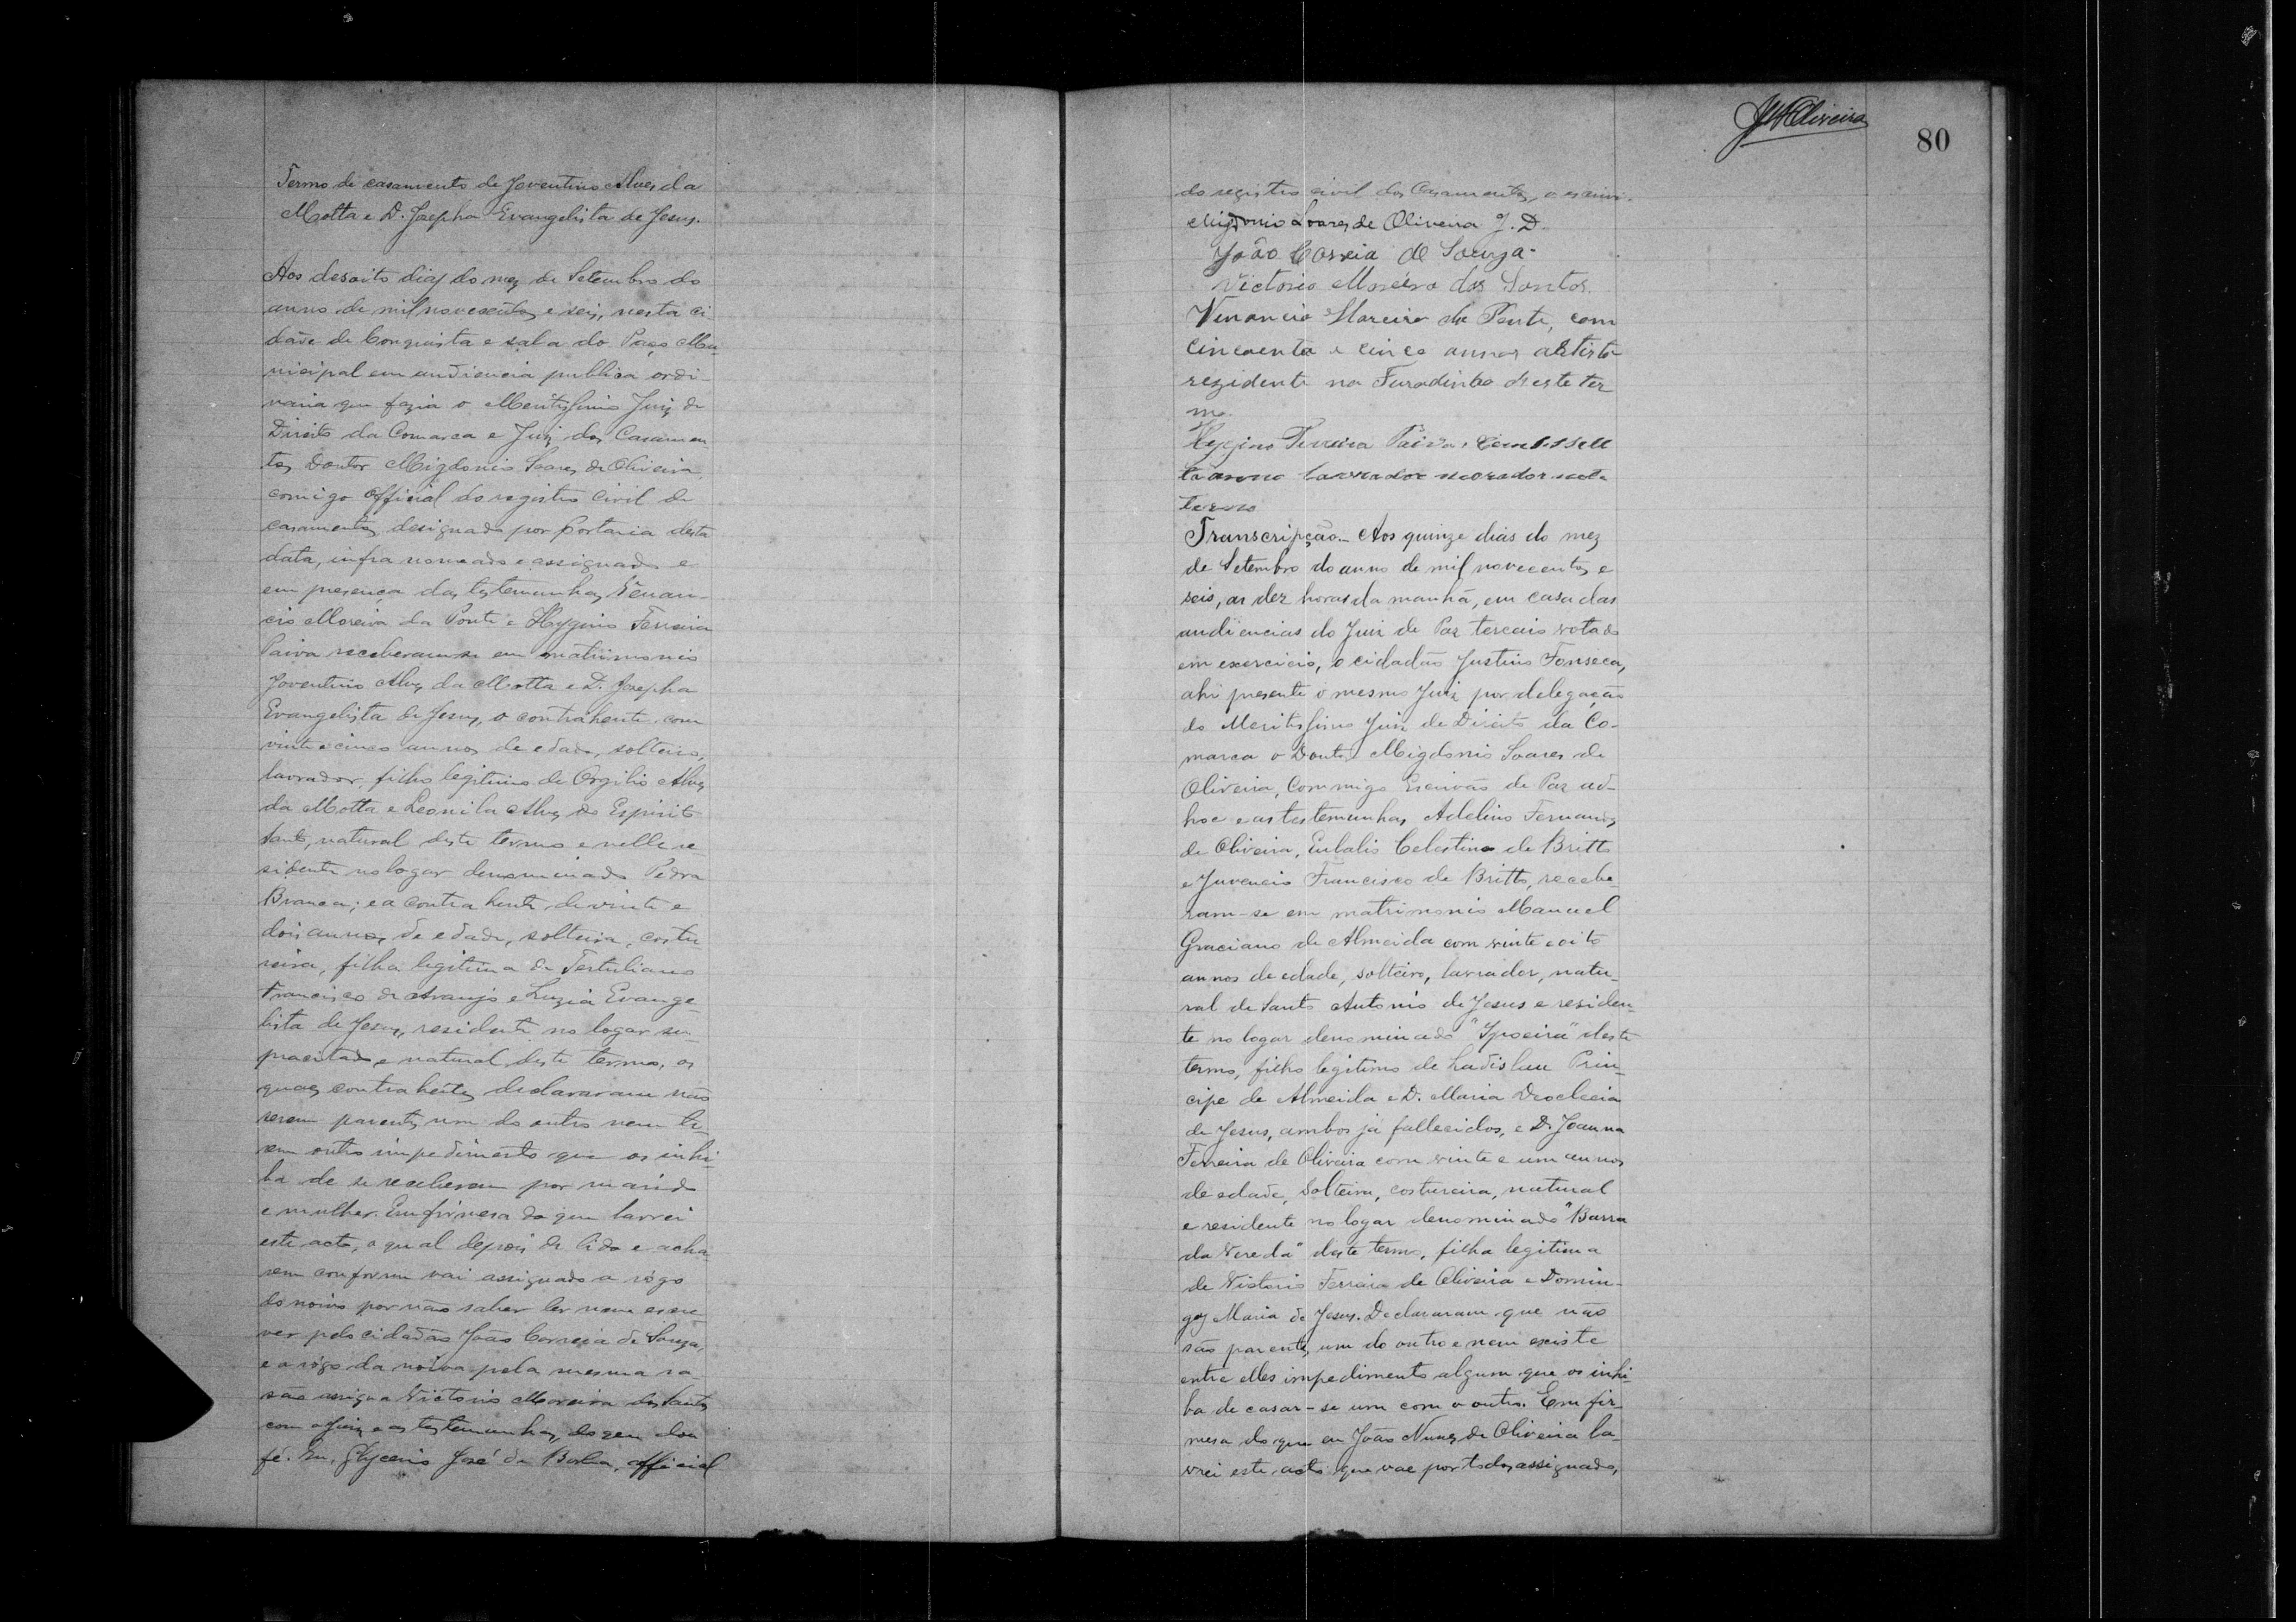 Termo de casamento de Joventino Alves da
Motta e D. Josepha Evangelista de Jesus.
Aos desoito dias do mez de Setembro do
anno de mil novecentos e seis, nesta ci
dade de Conquista e sala do Paço Mu-
nicipal em audiencia publica ordi-
naria que fazia o Meritissimo Juiz de
Direito da Comarca e Juiz dos Casamen
tos Doutor Migdonio Soares de Oliveira
comigo Official do registro civil de
casamentos designado por portaria desta
data, infra nomeado e assignado e
em presença das testemunhas Venan-
cio Moreira da Ponte e Hygino Ferreira
Paiva receberam-se em matrimonio
Joventino Alves da Motta e D. Josepha
Evangelista de Jesus, o contrahente com
vinte e cinco annos de edade, solteiro,
lavrador, filho legitimo de Orgilio Alves
da Motta e Leonila Alves do Espirito
Santo, natural deste termo e nelle re
sidente no logar denominado Pedra
Branca; e a contrahente de vinte e
dois annos de edade, solteira, costu
reira, filha legitima de Tertuliano
Francisco de Araujo e Luzia Evange-
lista de Jesus, residente no logar su-
pracitado e natural deste termo, os
quaes contrahentes declararam não
serem parentes um do outro nem te-
rem outro impedimento que os inhi-
ba de se receberem por marido
e mulher. Em firmesa do que lavrei
este acto, o qual depois de lido e acha
rem conforme vai assignado a rôgo
do noivo por não saber ler nem escre
ver pelo cidadão João Correia de Souza,
e a rôgo da noiva pela mesma ra
são assigna Victorio Moreira dos Santos
com o Juiz e as testemunhas, do que dou
fé. Eu, Glycerio José da Borba, official
J M Oliveira
80
do registro civil dos Casamentos, o escrevi.
Migdonio Soares de Oliveira J. D.
João Correia de Souza
Victorio Moreira dos Santos.
Venancio Moreira da Ponte, com
cincoenta e cinco annos artista
rezidente na Furadinha deste ter
mo.
Hygino Ferreira Paiva,
ta anno lavrador morador neste
termo
Transcripção_ Aos quinze dias do mez
de Setembro do anno de mil novecentos e
seis, as dez horas da manhã, em casa das
audiencias do Juiz de Paz terceiro votado
em exercicio, o cidadão Justino Fonseca,
ahi presente o mesmo Juiz por delegação
do Meritissimo Juiz de Direito da Co-
marca o Doutor Migdonio Soares de
Oliveira, Commigo Escrivão de Paz ad-
hoc e as testemunhas Adelino Fernandes
de Oliveira, Eulalio Celestino de Britto
e Juvencio Francisco de Britto, recebe-
ram-se em matrimonio Manuel
Graciano de Almeida com vinte e oito
annos de edade, solteiro, lavrador, natu-
ral de Santo Antonio de Jesus e residen-
te no logar denominado "Ypoeira" deste
termo, filho legitimo de Ladislau Prin-
cipe de Almeida e D. Maria Deoclecia
de Jesus, ambos já fallecidos, e D. Joanna
Ferreira de Oliveira com vinte e um annos
de edade, solteira, costureira, natural
e residente no logar denominado "Barra
da Vereda" deste termo, filha legitima
de Victorio Ferreira de Oliveira e Domin-
gas Maria de Jesus. Declararam que não
são parentes um do outro e nem existe
entre elles impedimento algum que os inhi-
ba de casar-se um com o outro. Em fir-
mesa do que eu João Nunes de Oliveira la-
vrei este acto que vae por todos assignado,